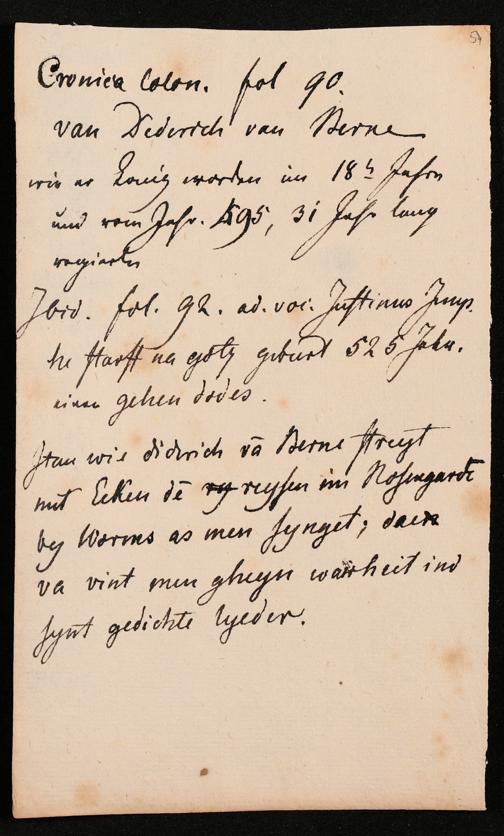 54
Cronica Colon. fol 90.
van Dederich van Berne
wie er Konig worden im 18t Jahre
und vom Jahr. 495, 31 Jahr lang
regierte
Ibid. fol. 92. ad. voc. Justinus Imp.
he starff na gotz geburt 525 Jahr.
eines gehen dodes.
Item wie diderich vā Berne streyt
mit Ecken dē reysen im Rosengardē
by Worms as men synget; daer
va vint men gheyn warheit ind
synt gedichte lyeder.